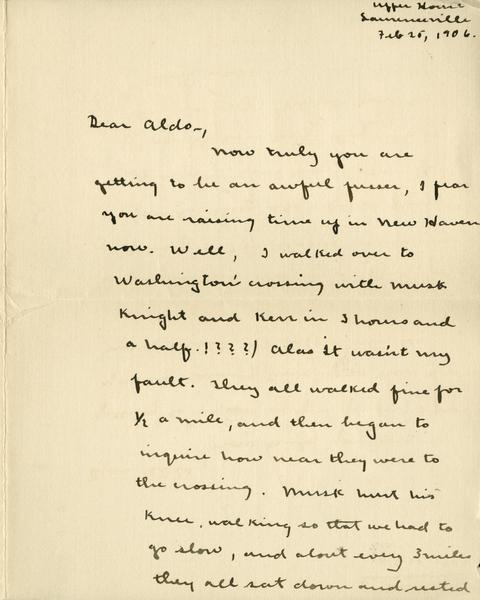 Upper House
Lawrenceville
Feb 25, 1906.
Dear Aldo-,
Now truly you are
getting to be an awful fusser, I fear
you are raising time up in New Haven
now. Well, I walked over to
Washington's crossing with Musk
Knight and Kerr in 3 hours and
a half.!???) Alas it wasn't my
fault. They all walked fine for
1/2 a mile, and then began to
inquire how near they were to
the crossing. Musk hurt his
knee, walking so that we had to
go slow, and about every 3 miles
they all sat down and rested